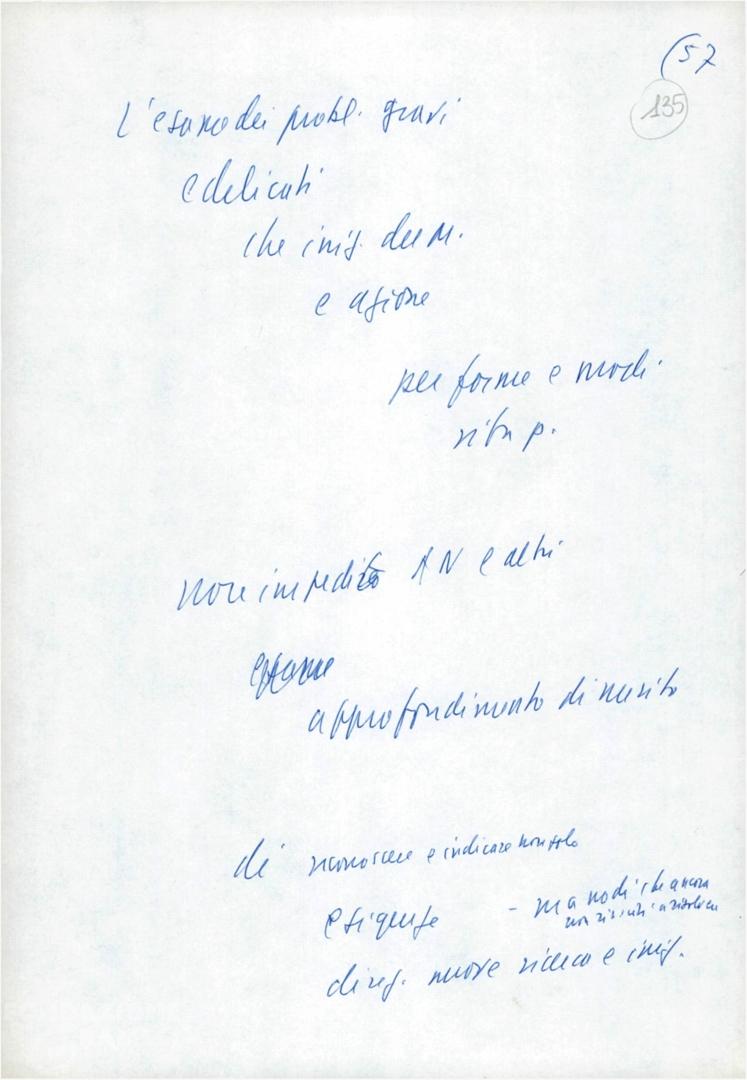 (57
135
L'esame dei probl. gravi
e delicati
che iniz. deem.
e azione
per forme e modi
rita p.
non impedito AN e altri
esame
approfondimento di merito
di riconoscere e indicare non solo
esigenze - ma nodi che ancora
non riusciti a risolvere
di rif. nuove ricerca e iniz.